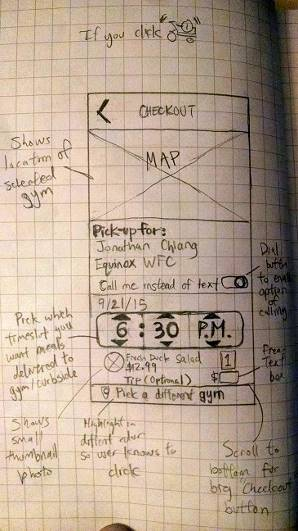 If you click
CHECKOUT
Shows
location of
selected
gym
MAP
Pick-up for:
Jonathan Chiang
Equinox WFC
Call me instead of text
Dial
button
to enable
option of
calling
9/21/15
6 : 30 P.M.
Pick which
timeslot you
want meals
delivered to
gym/curbside
Fresh Duck Salad
$12.99
1
Tip (Optional)
$
Free
Text
box
Pick a different gym
Shows
small
thumbnail
photo
Highlighted in
different color
so user knows to
click
Scroll to
bottom for
big Checkout
button